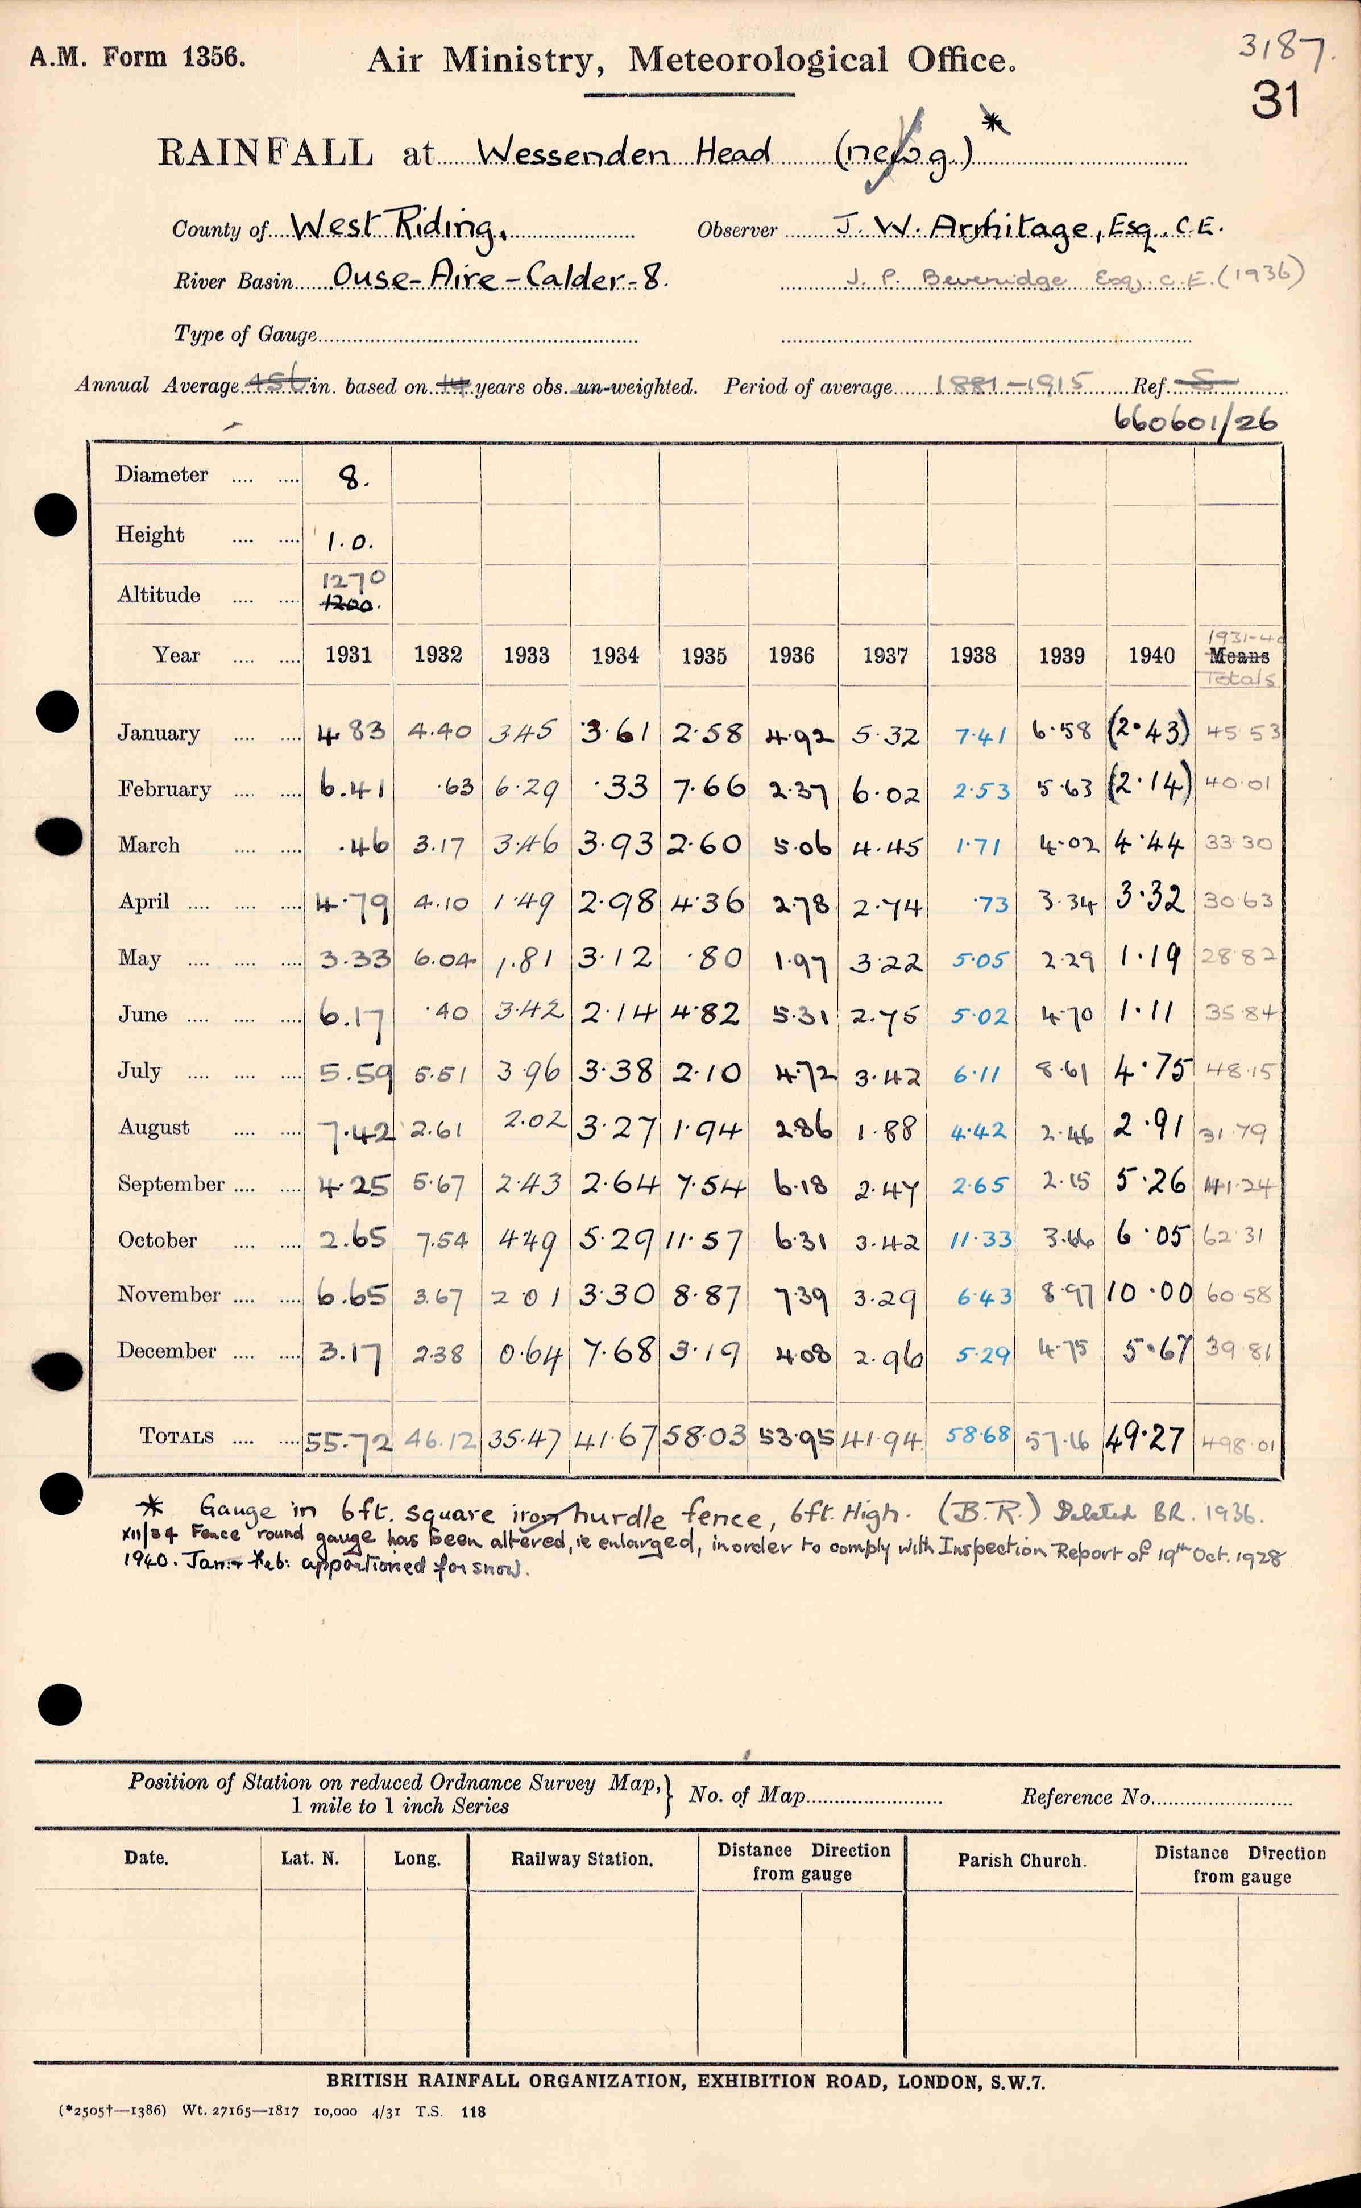 3187.
A.M. Form 1356. Air Ministry, Meteorological Office.
31
RAINFALL at Wessenden Head (new g.) *
County of West Riding. Observer J. W. Armitage, Esq., C.E.
River Basin Ouse-Aire-Calder-8. J. P. Beveridge Esq. C.E. (1936)
Type of Gauge
Annual Average 456 in. based on 14 years obs. un-weighted. Period of average 1881-1915 Ref. S
660601/26
Diameter 8.
Height 1.0.
Altitude 1270
1200.
1931-40
Year 1931 1932 1933 1934 1935 1936 1937 1938 1939 1940 Means
Totals
January 4.83 4.40 3.45 3.61 2.58 4.92 5.32 7.41 6.58 (2.43) 45.53
February 6.41 .63 6.29 .33 7.66 2.37 6.02 2.53 5.63 (2.14) 40.01
March .46 3.17 3.46 3.93 2.60 5.06 4.45 1.71 4.02 4.44 33.30
April 4.79 4.10 1.49 2.98 4.36 2.78 2.74 .73 3.34 3.32 30.63
May 3.33 6.04 1.81 3.12 .80 1.97 3.22 5.05 2.29 1.19 28.82
June 6.17 .40 3.42 2.14 4.82 5.31 2.75 5.02 4.70 1.11 35.84
July 5.59 5.51 3.96 3.38 2.10 4.72 3.42 6.11 8.61 4.75 48.15
August 7.42 2.61 2.02 3.27 1.94 2.86 1.88 4.42 2.46 2.91 31.79
September 4.25 5.67 2.43 2.64 7.54 6.18 2.47 2.65 2.15 5.26 41.24
October 2.65 7.54 4.49 5.29 11.57 6.31 3.42 11.33 3.66 6.05 62.31
November 6.65 3.67 2.01 3.30 8.87 7.39 3.29 6.43 8.97 10.00 60.58
December 3.17 2.38 0.64 7.68 3.19 4.08 2.96 5.29 4.75 5.67 39.81
TOTALS 55.72 46.12 35.47 41.67 58.03 53.95 41.94 58.68 57.16 49.27 498.01
* Gauge in 6ft. square iron hurdle fence, 6ft. High. (B.R.) Deleted BR. 1936.
XII/34 Fence round gauge has been altered, ie enlarged, in order to comply with Inspection Report of 19th Oct. 1928
1940. Jan + Feb: apportioned for snow.
Position of Station on reduced Ordnance Survey Map, } No. of Map Reference No.
1 mile to 1 inch Series
Date. Lat. N. Long. Railway Station. Distance Direction from gauge Parish Church. Distance Direction from gauge
BRITISH RAINFALL ORGANIZATION, EXHIBITION ROAD, LONDON, S.W.7.
(*2505†—1386) Wt. 27165—1817 10,000 4/31 T.S. 118